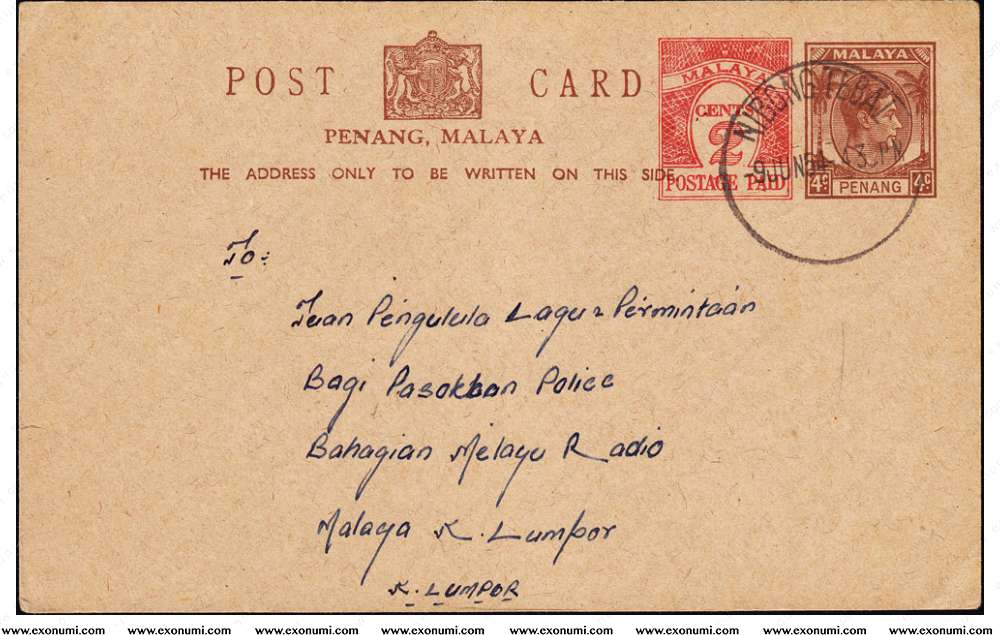 POST CARD
PENANG, MALAYA
THE ADDRESS ONLY TO BE WRITTEN ON THIS SIDE
MALAYA
CENTS
2
POSTAGE PAID
MALAYA
4c PENANG 4c
NIBONG TEBAL
9 JUN 54 3. PM
To:
Tuan Pengulula Lagu2 Permintaan
Bagi Pasokkan Police
Bahagian Melayu Radio
Malaya K. Lumpor
K. LUMPOR
www.exonumi.com www.exonumi.com www.exonumi.com www.exonumi.com www.exonumi.com www.exonumi.com www.exonumi.com www.exonumi.com